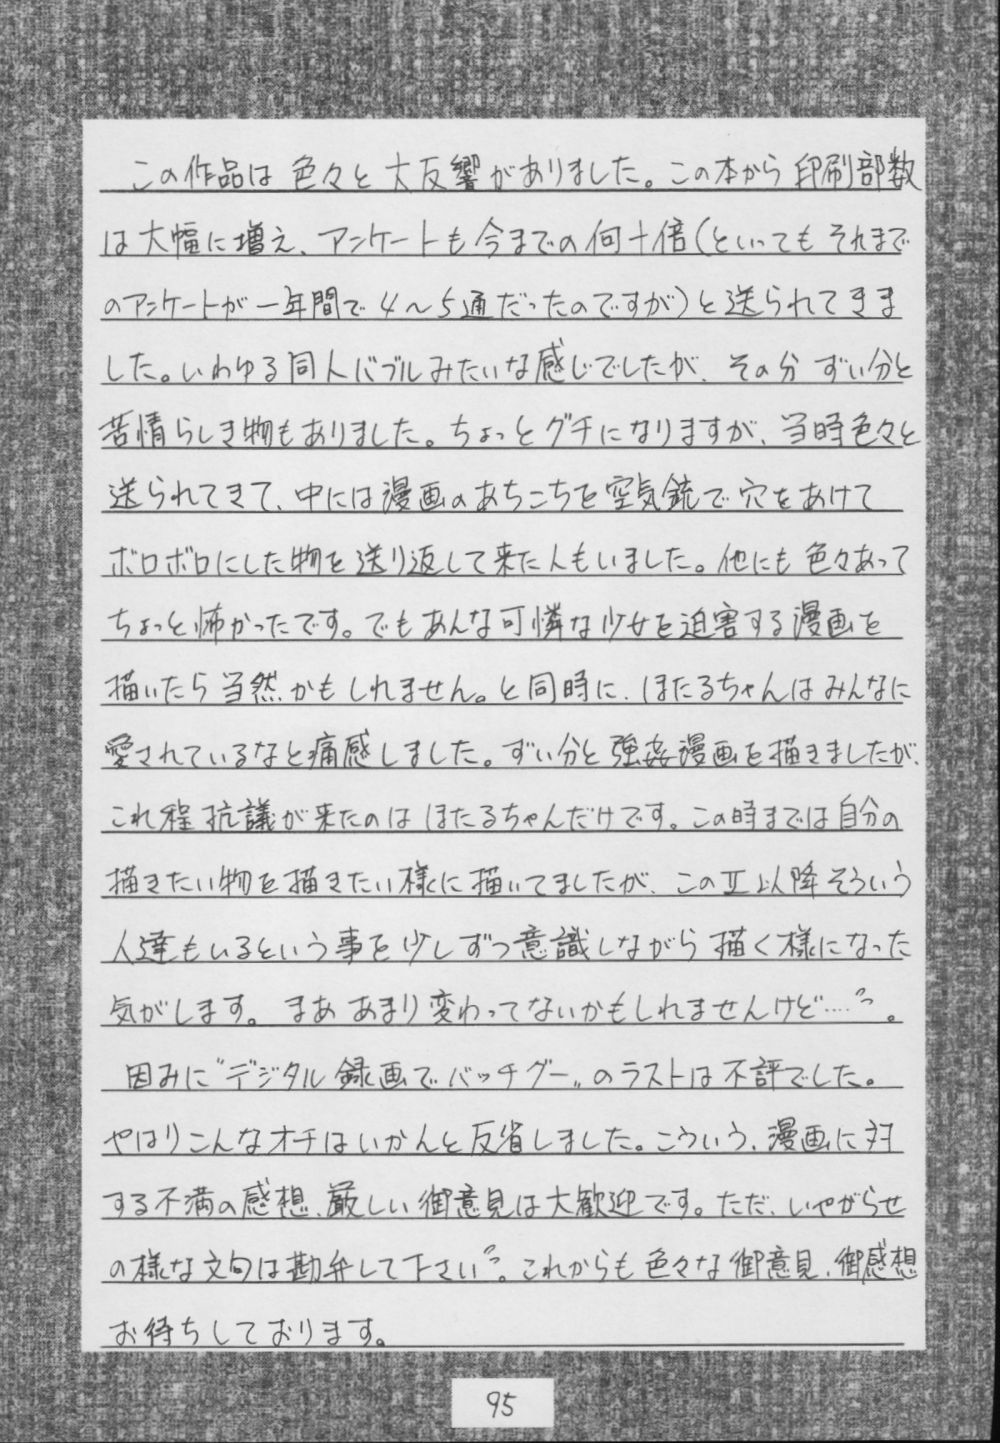 この作品は色々と大反響がありました。この本から印刷部数
は大幅に増え、アンケートも今までの何十倍（といってもそれまで
のアンケートが一年間で４〜５通だったのですが）と送られてきま
した。いわゆる同人バブルみたいな感じでしたが、その分ずい分と
苦情らしき物もありました。ちょっとグチになりますが、当時色々と
送られてきて、中には漫画のあちこちを空気銃で穴をあけて
ボロボロにした物を送り返して来た人もいました。他にも色々あって
ちょっと怖かったです。でもあんな可憐な少女を迫害する漫画を
描いたら当然かもしれません。と同時に、ほたるちゃんはみんなに
愛されているなと痛感しました。ずい分と強姦漫画を描きましたが、
これ程抗議が来たのはほたるちゃんだけです。この時までは自分の
描きたい物を描きたい様に描いてましたが、このⅡ以降そういう
人達もいるという事を少しずつ意識しながら描く様になった
気がします。まああまり変わってないかもしれませんけど……。
因みに“デジタル録画でバッチグー„のラストは不評でした。
やはりこんなオチはいかんと反省しました。こういう、漫画に対
する不満の感想、厳しい御意見は大歓迎です。ただ、いやがらせ
の様な文句は勘弁して下さい。これからも色々な御意見、御感想
お待ちしております。
95